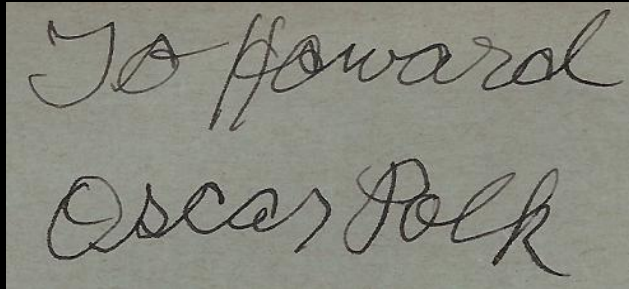 To Howard
Oscar Polk